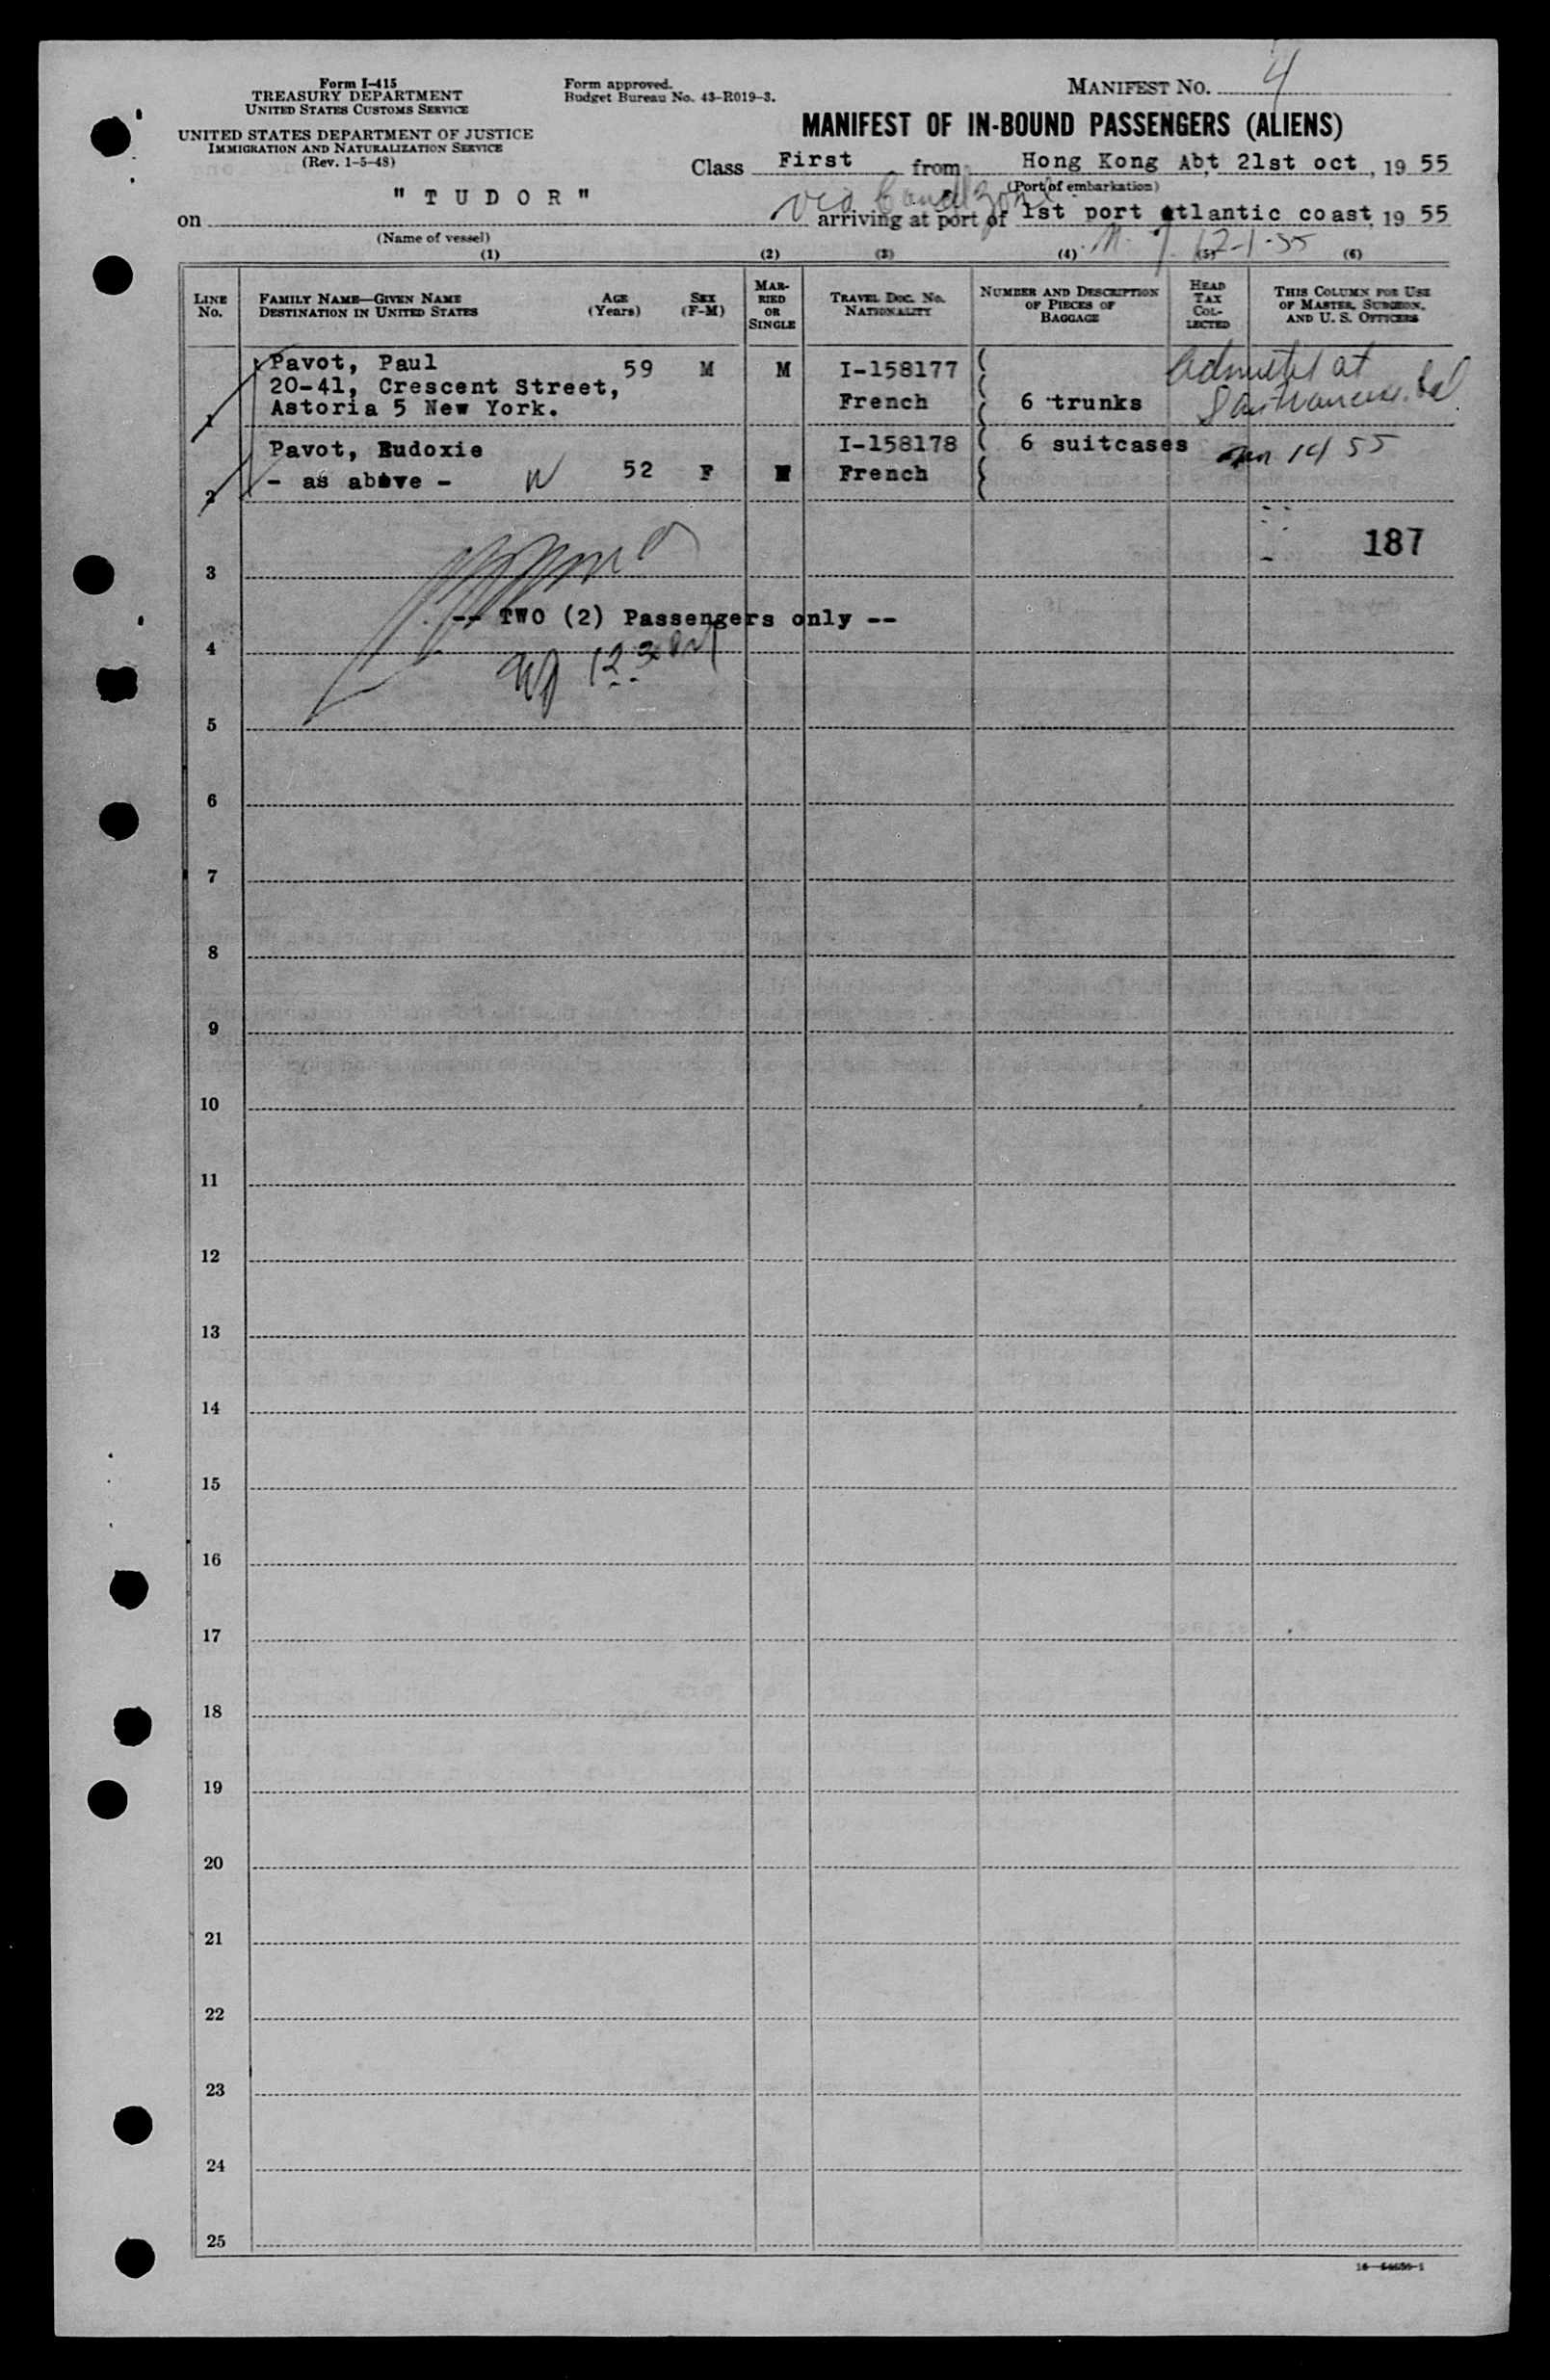 Form I-415
TREASURY DEPARTMENT
UNITED STATES CUSTOMS SERVICE
UNITED STATES DEPARTMENT OF JUSTICE
IMMIGRATION AND NATURALIZATION SERVICE
(Rev. 1-5-48)
Form approved.
Budget Bureau No. 43-R019-3.
MANIFEST NO. 4
MANIFEST OF IN-BOUND PASSENGERS (ALIENS)
Class First from Hong Kong Abt. 21st oct, 19 55
(Port of embarkation)
via Canal Zone
on "TUDOR" arriving at port of 1st port atlantic coast, 19 55
(Name of vessel)
12-1-55
(1) (2) (3) (4) (5) (6)
LINE NO.
FAMILY NAME—GIVEN NAME
DESTINATION IN UNITED STATES
AGE (Years)
SEX (F-M)
MARRIED OR SINGLE
TRAVEL DOC. NO.
NATIONALITY
NUMBER AND DESCRIPTION OF PIECES OF BAGGAGE
HEAD TAX COLLECTED
THIS COLUMN FOR USE OF MASTER, SURGEON, AND U. S. OFFICERS
1 Pavot, Paul 59 M M I-158177
20-41, Crescent Street,
Astoria 5 New York. French 6 trunks
Admitted at
San Francisco. Cal
2 Pavot, Eudoxie I-158178 6 suitcases
- as above - W 52 F M French
14 55
187
3
-- TWO (2) Passengers only --
4
5
6
7
8
9
10
11
12
13
14
15
16
17
18
19
20
21
22
23
24
25